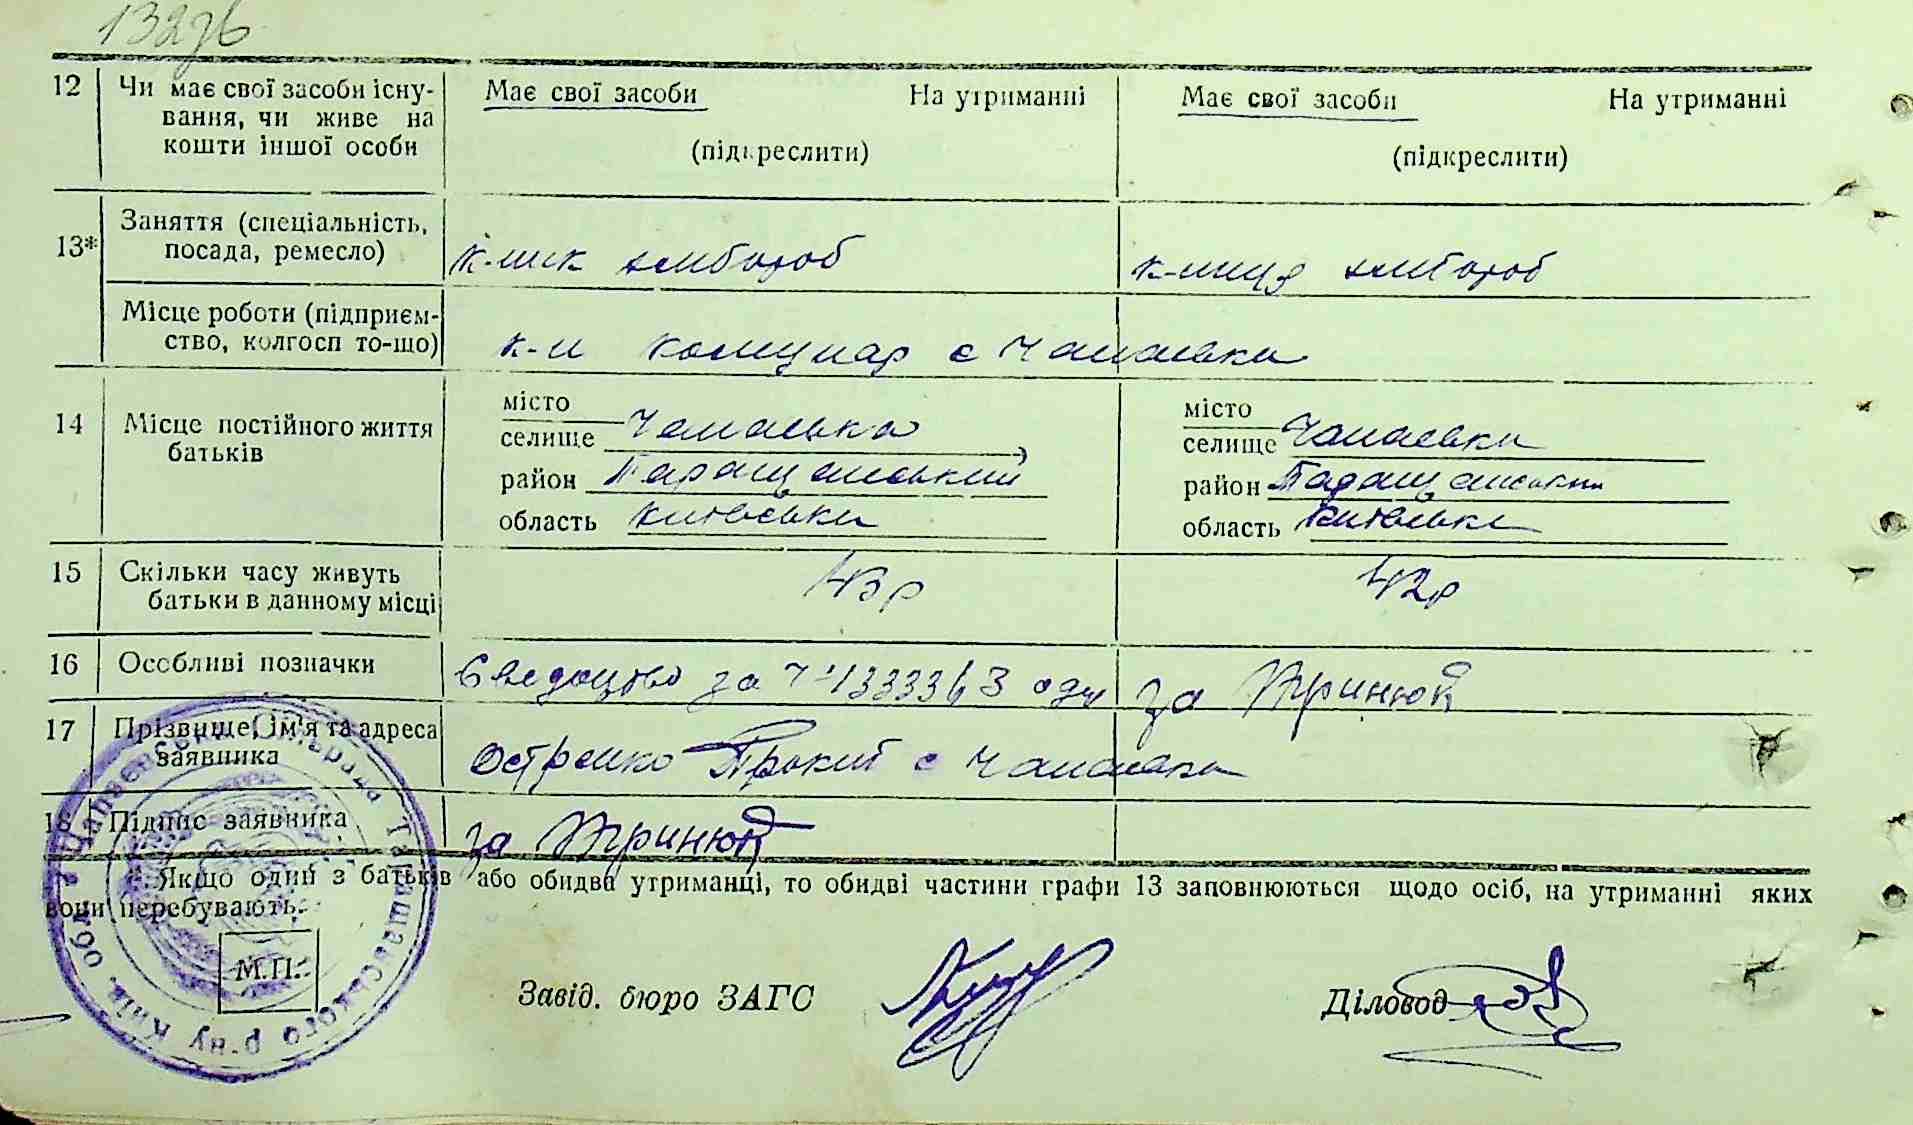 132
12 Чи має свої засоби існу- Має свої засоби На утриманні Має свої засоби На утриманні
вання, чи живе на
кошти іншої особи (підкреслити) (підкреслити)
13* Заняття (спеціальність,
посада, ремесло) к-ник хлібороб к-ниця хлібороб
Місце роботи (підприєм-
ство, колгосп то-що) к-п комунар с Чапаєвка
14 Місце постійного життя
батьків
місто місто
селище Чапаєвка селище Чапаєвка
район Таращанський район Таращанський
область Київська область Київська
15 Скільки часу живуть
батьки в данному місці 43 р 42 р
16 Особливі позначки за Ч за
17 Прізвище, ім'я та адреса
заявника с Чапаєвка
18 Підпис заявника за
* Якщо один з батьків або обидва утриманці, то обидві частини графи 13 заповнюються щодо осіб, на утриманні яких
вони перебувають.
М.П.
Завід. бюро ЗАГС Діловод
Таращанського р-ну Київ. обл.